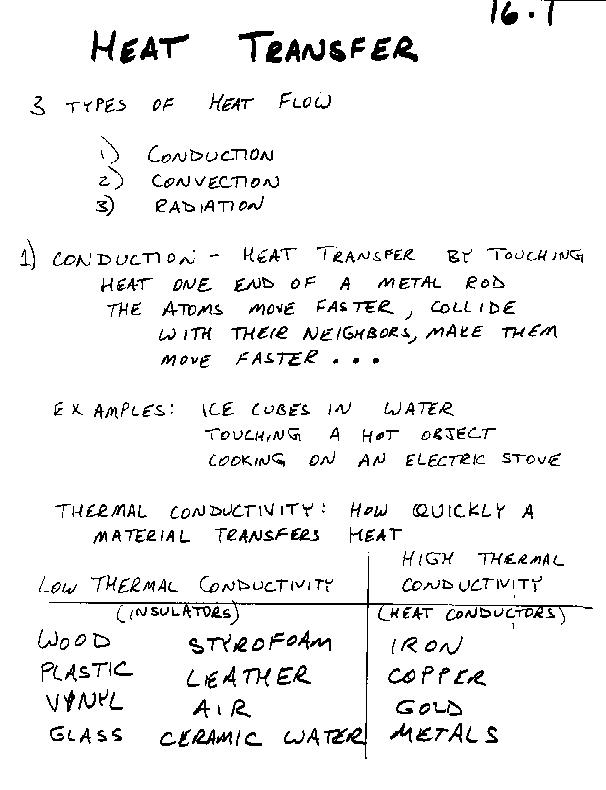 16.1
HEAT TRANSFER
3 TYPES OF HEAT FLOW
1) CONDUCTION
2) CONVECTION
3) RADIATION
1) CONDUCTION - HEAT TRANSFER BY TOUCHING
HEAT ONE END OF A METAL ROD
THE ATOMS MOVE FASTER, COLLIDE
WITH THEIR NEIGHBORS, MAKE THEM
MOVE FASTER...
EXAMPLES: ICE CUBES IN WATER
TOUCHING A HOT OBJECT
COOKING ON AN ELECTRIC STOVE
THERMAL CONDUCTIVITY: HOW QUICKLY A
MATERIAL TRANSFERS HEAT
LOW THERMAL CONDUCTIVITY
(INSULATORS)
WOOD STYROFOAM
PLASTIC LEATHER
VINYL AIR
GLASS CERAMIC WATER
HIGH THERMAL
CONDUCTIVITY
(HEAT CONDUCTORS)
IRON
COPPER
GOLD
METALS